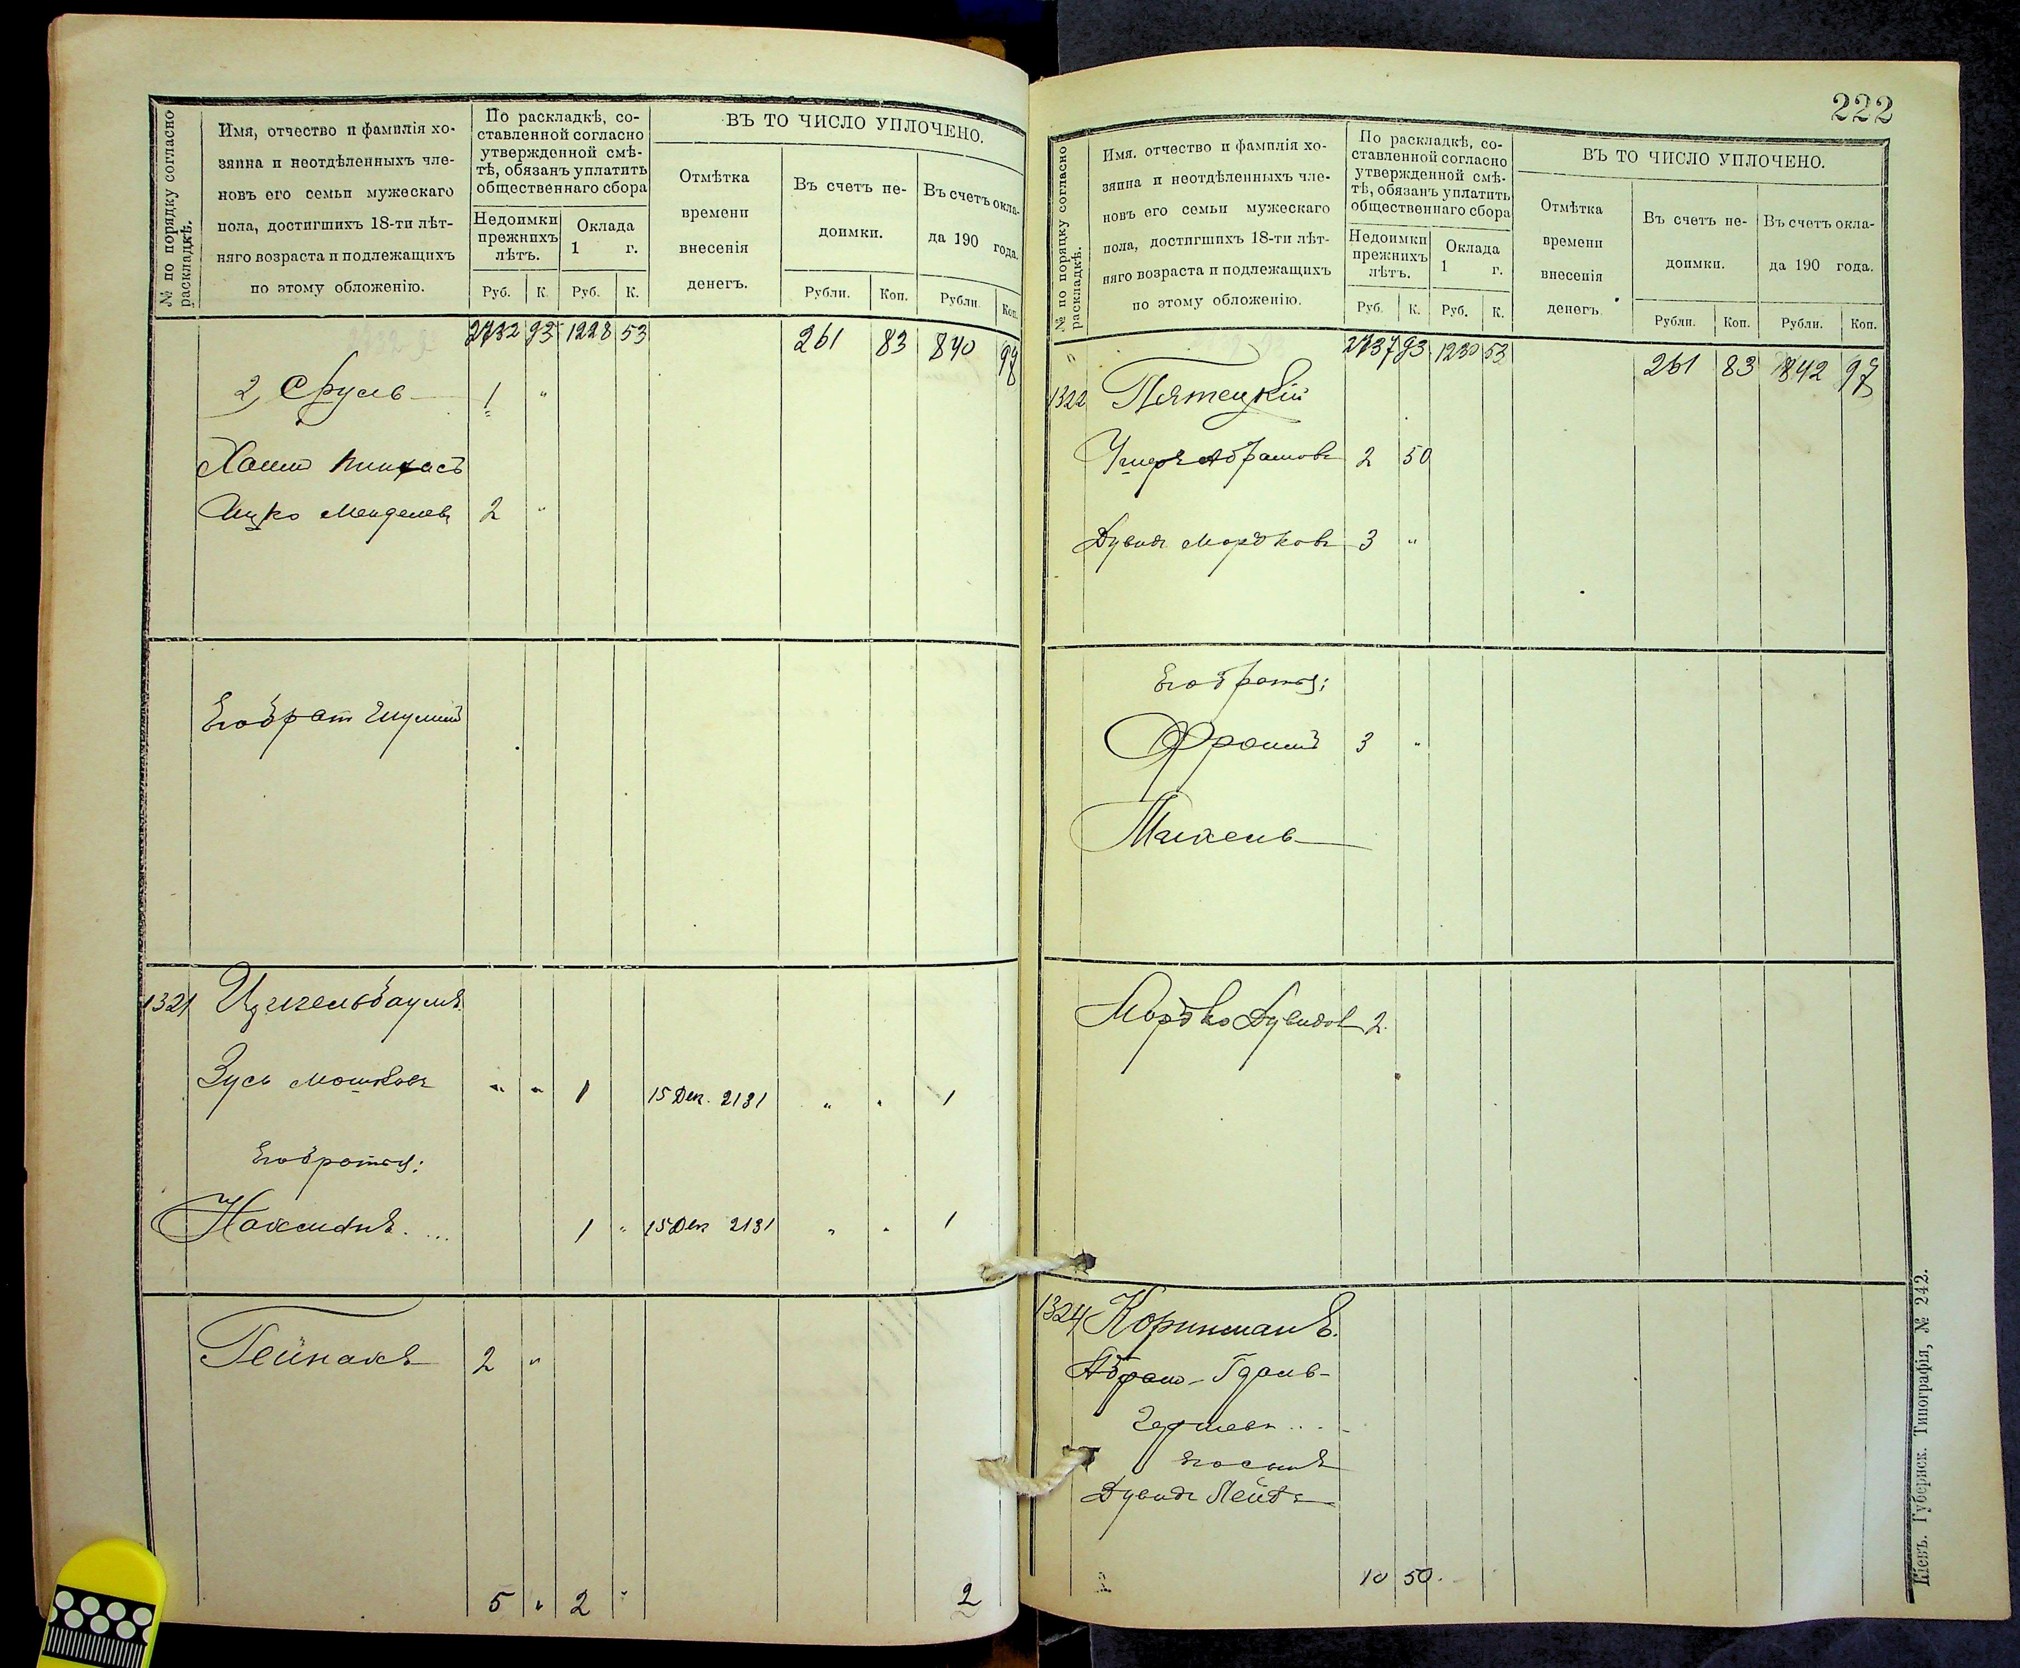 № по порядку согласно раскладкѣ.
Имя, отчество и фамилія хо-
зяина и неотдѣленныхъ чле-
новъ его семьи мужескаго
пола, достигшихъ 18-ти лѣт-
няго возраста и подлежащихъ
по этому обложенію.
По раскладкѣ, со-
ставленной согласно
утвержденной смѣ-
тѣ, обязанъ уплатить
общественнаго сбора
Недоимки
прежнихъ
лѣтъ.
Оклада
1 г.
Руб. К. Руб. К.
ВЪ ТО ЧИСЛО УПЛОЧЕНО.
Отмѣтка
времени
внесенія
денегъ.
Въ счетъ не-
доимки.
Рубли. Коп.
Въ счетъ окла-
да 190 года.
Рубли Коп.
2732 93 1228 53 261 83 840 97
2, Сруль 1 "
Хаимъ Пинхасъ
Ицко Менделев 2 "
Его братъ Шулимъ
1321 Цигельбаумъ
Зусь Мошковъ " " 1 15 Дек. 2131 " " 1
Его братья:
Нахманъ. ... 1 " 15 Дек 2131 " " 1
Гейнахъ 2 "
5 " 2 " 2
222
№ по порядку согласно раскладкѣ.
Имя. отчество и фамилія хо-
зяина и неотдѣленныхъ чле-
новъ его семьи мужескаго
пола, достигшихъ 18-ти лѣт-
няго возраста и подлежащихъ
по этому обложенію.
По раскладкѣ, со-
ставленной согласно
утвержденной смѣ-
тѣ, обязанъ уплатить
общественнаго сбора
Недоимки
прежнихъ
лѣтъ.
Оклада
1 г.
Руб. К. Руб. К.
ВЪ ТО ЧИСЛО УПЛОЧЕНО.
Отмѣтка
времени
внесенія
денегъ.
Въ счетъ не-
доимки.
Рубли. Коп.
Въ счетъ окла-
да 190 года.
Рубли. Коп.
2737 93 1230 53 261 83 842 97
1322 Пятецкій
Абрамовъ 2 50
Дувидъ Мордковъ 3 "
Его братья:
Фроимъ 3 "
Михель
Мордко Дувидов 2
1324 Коринманъ.
Абрам-Гдаль-
Гершевъ ...
его сынъ
Дувидъ Лейбъ
10 50.
Кіевъ. Губернск. Типографія, № 242.